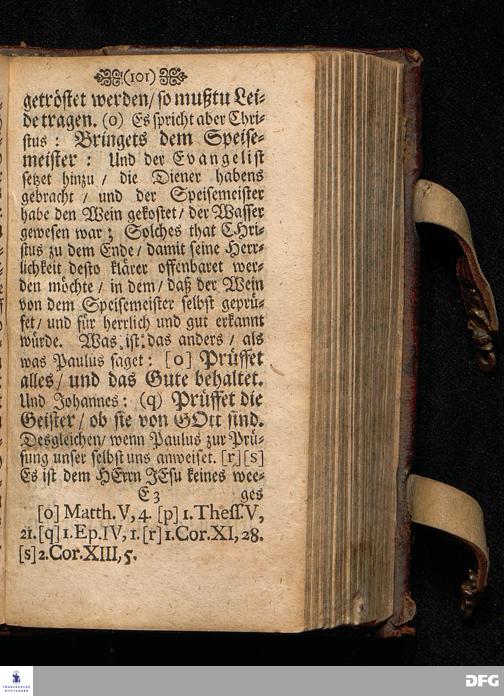 (101)
getröstet werden/ so mußtu Lei-
de tragen. (o) Es spricht aber Chri-
stus: Bringets dem Speise-
meister: Und der Evangelist
setzet hinzu / die Diener habens
gebracht / und der Speisemeister
habe den Wein gekostet / der Wasser
gewesen war; Solches that CHri-
stus zu dem Ende / damit seine Herr-
lichkeit desto klärer offenbaret wer-
den möchte / in dem / daß der Wein
von dem Speisemeister selbst geprü-
fet / und für herrlich und gut erkannt
würde. Was ist das anders / als
was Paulus saget: [o] Prüffet
alles / und das Gute behaltet.
Und Johannes: (q) Prüffet die
Geister / ob sie von GOtt sind.
Desgleichen / wenn Paulus zur Prü-
fung unser selbst uns anweiset. [r] [s]
Es ist dem HErrn JEsu keines wee-
E 3 ges
[o] Matth. V, 4. [p] 1. Thess. V,
21. [q] 1. Ep. IV, 1. [r] 1. Cor. XI, 28.
[s] 2. Cor. XIII, 5.
FRANCKESCHE
STIFTUNGEN
DFG